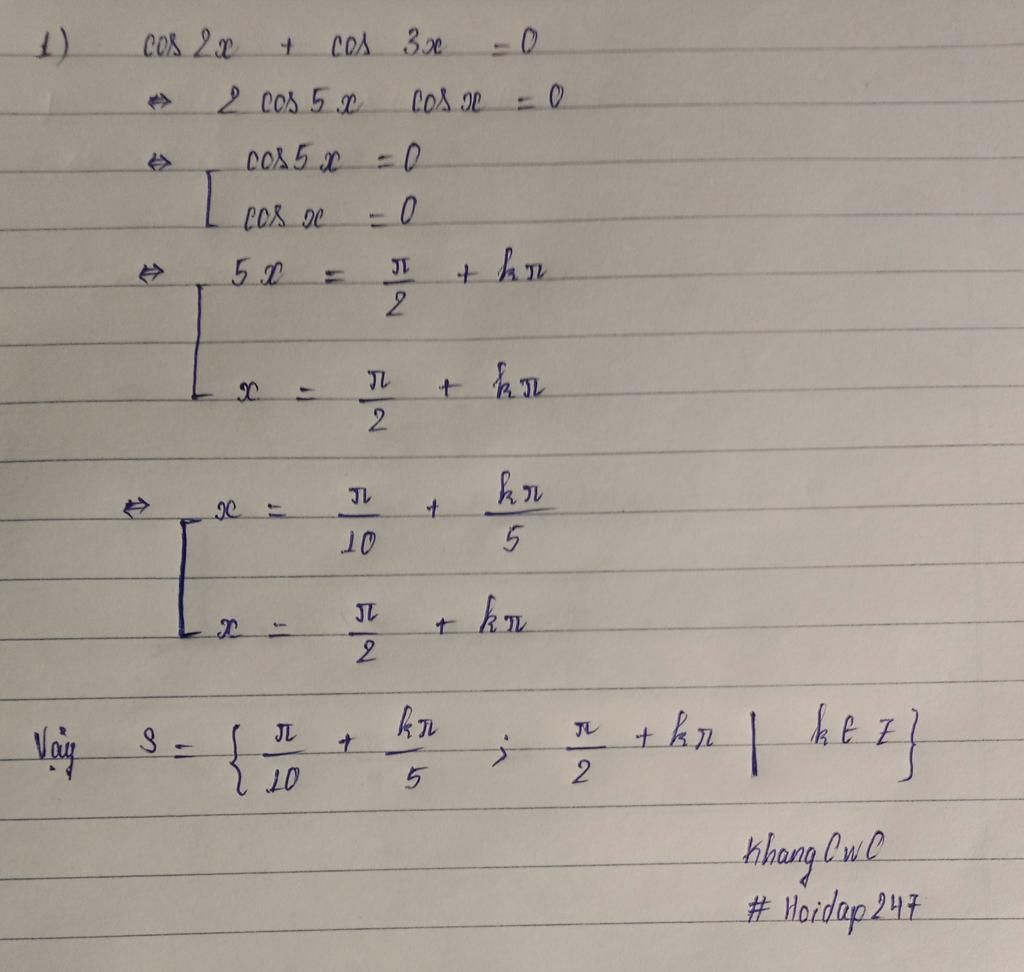 1) cos 2x + cos 3x = 0
⇔ 2 cos 5x cos x = 0
⇔ [ cos 5x = 0
cos x = 0
⇔ [ 5x = π/2 + kπ
x = π/2 + kπ
⇔ [ x = π/10 + kπ/5
x = π/2 + kπ
Vậy S = { π/10 + kπ/5 ; π/2 + kπ | k ∈ Z }
Khang CwC
# Hoidap247